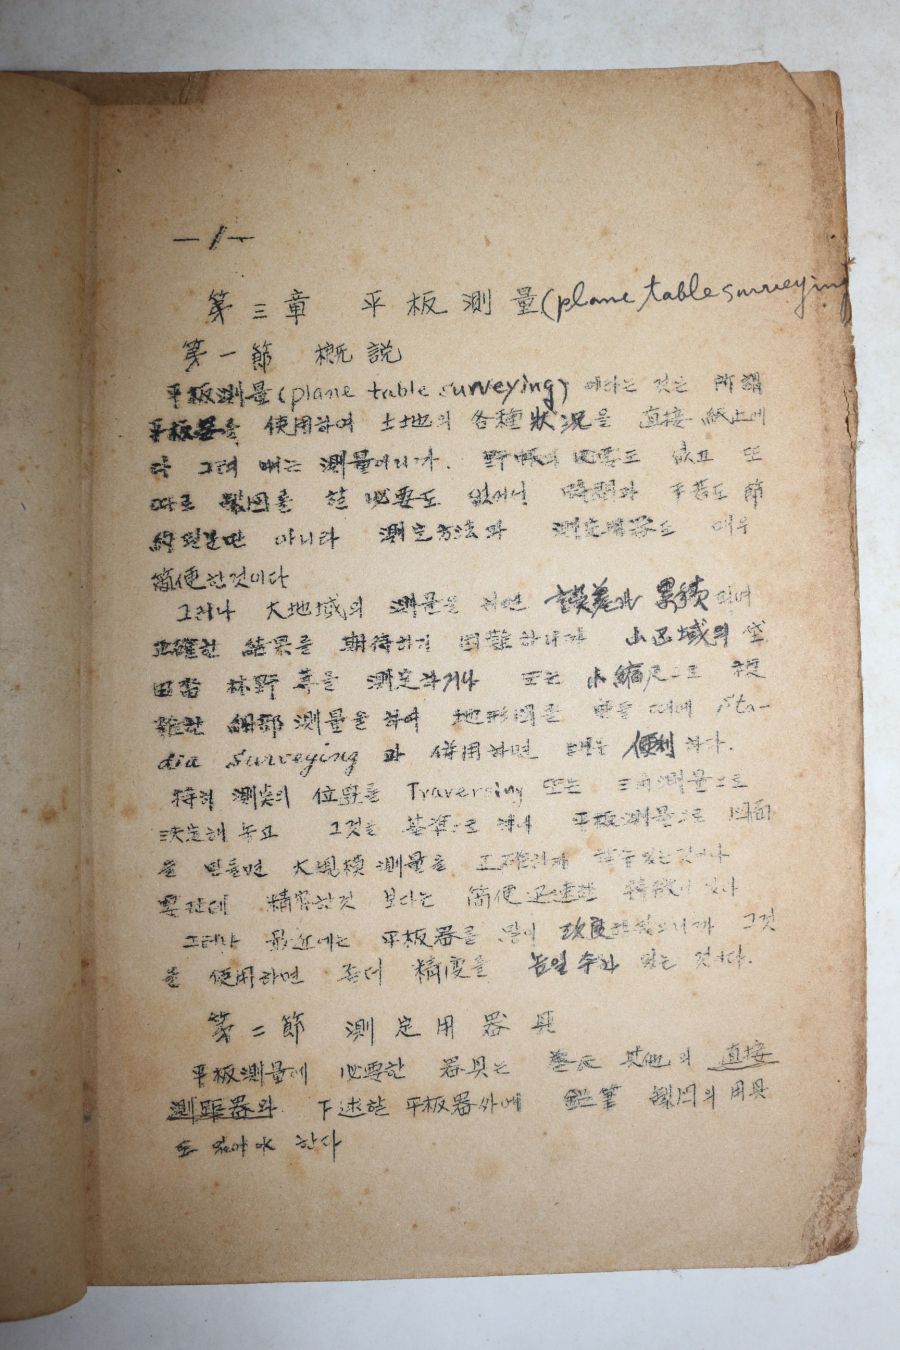 —1—
第三章 平板測量(plane table surveying)
第一節 概説
平板測量(plane table surveying) 이라는 것은 所謂
平板器를 使用하여 土地의 各種狀況을 直接 紙上에
다 그려 내는 測量이니까. 野帳의 必要도 없고 또
따로 製圖를 할 必要도 없어서 時間과 手苦도 節
約될뿐만 아니라 測定方法과 測定器도 매우
簡便한것이다
그러나 大地域의 測量을 하면 誤差가 累積되여
正確한 結果를 期待하기 困難하니까 小区域의
田畓 林野 等을 測定하거나 또는 小縮尺으로 複
雜한 細部測量을 하여 地形圖를 만들 때에 Sta-
dia Surveying 과 併用하면 便利하다.
特히 測点의 位置를 Traversing 또는 三角測量으로
決定해 놓고 그것을 基準으로 해서 平板測量으로 圖面
을 만들면 大規模 測量을 正確하게 할수있는것이다
要컨대 精密한것 보다는 簡便迅速한 特徵이 있다
그러나 最近에는 平板器를 많이 改良하였으니까 그것
을 使用하면 좀더 精度를 높일수가 있는 것이다.
第二節 測定用器具
平板測量에 必要한 器具는 其他의 直接
測距器와 下述한 平板器外에 鉛筆 製圖의 用具
도 있어야 한다